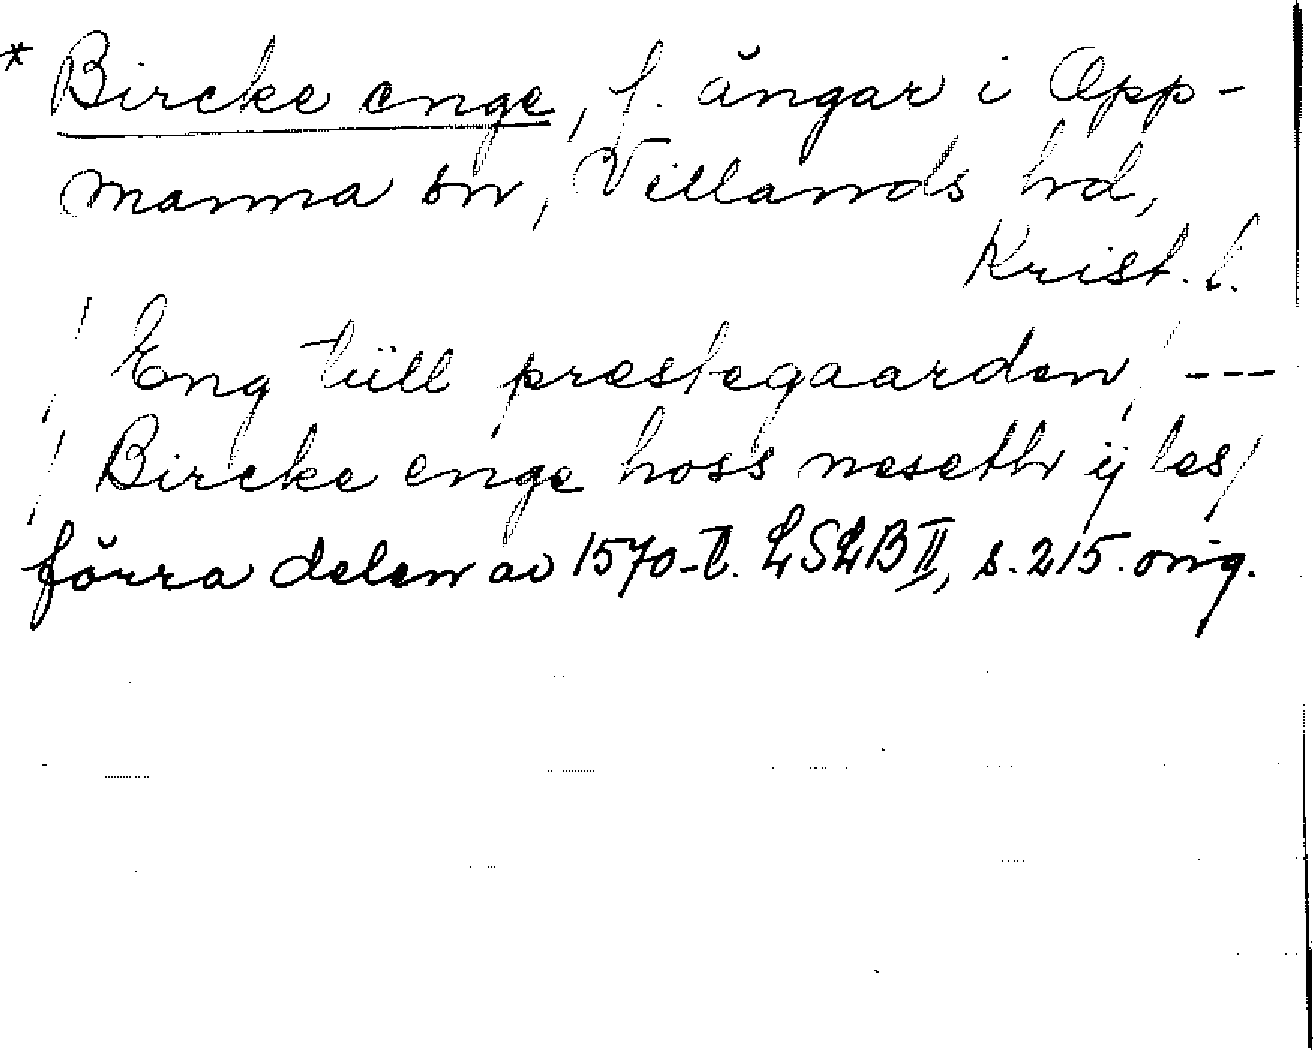 * Bircke enge, f. ängar i Opp-
manna sn, Villands hd,
Krist. l.
/ Eng tüll prestegaarden / ---
/ Bircke enge hoss neseth ÿ les /
förra delen av 1570-t. LSLB II, s. 215. orig.